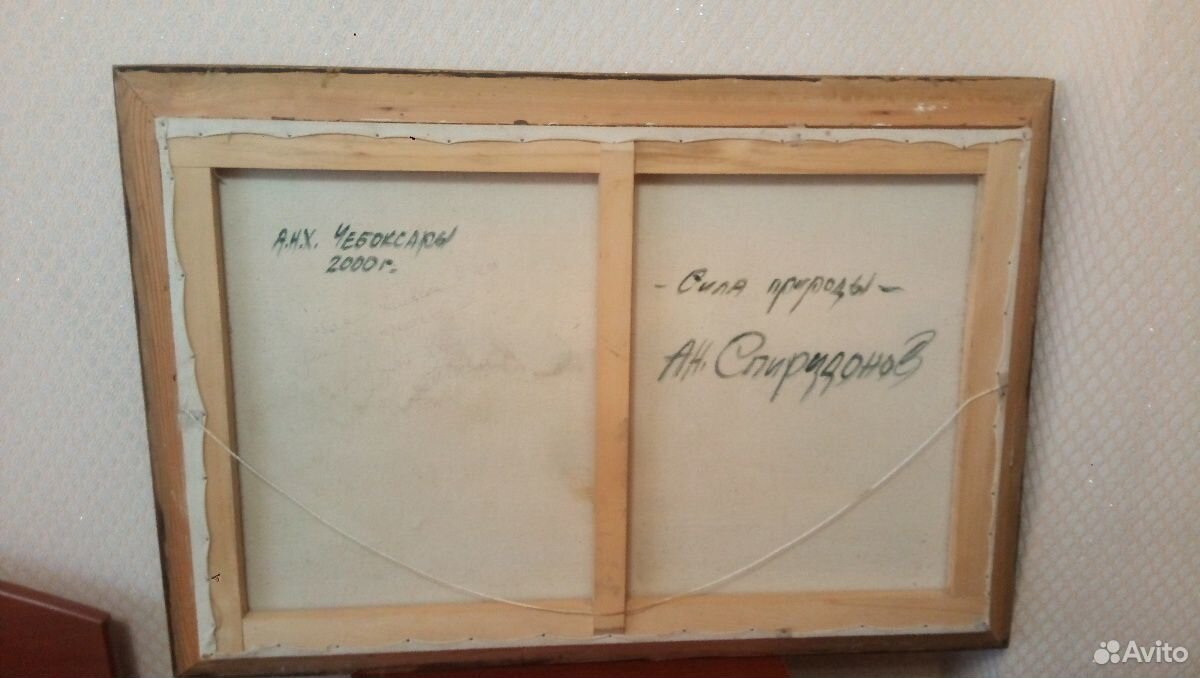 А.Н.Х. ЧЕБОКСАРЫ
2000г.
- Сила природы -
АН. Спиридонов
Avito